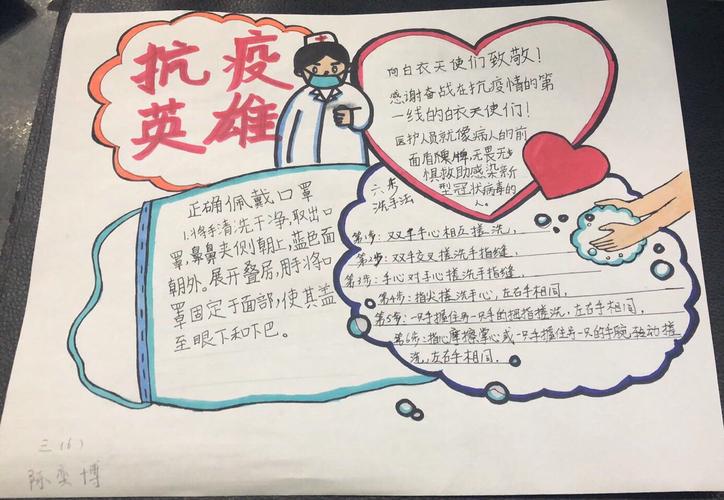 抗疫
英雄
向白衣天使们致敬！
感谢奋战在抗疫情的第
一线的白衣天使们！
医护人员就像病人的前
面盾牌,无畏无
惧救助感染新
型冠状病毒的
人。
正确佩戴口罩
1.将手清洗干净,取出口
罩,鼻夹侧朝上,蓝色面
朝外。展开叠层,用手将口
罩固定于面部,使其盖
至眼下和下巴。
六步
洗手法
第1步：双手手心相互搓洗,
第2步：双手交叉搓洗手指缝,
第3步：手心对手心搓洗手指缝,
第4步：指尖搓洗手心,左右手相同,
第5步：一只手握住另一只手的拇指搓洗,左右手相同,
第6步：指心摩擦掌心或一只手握住另一只的手腕,转动搓
洗,左右手相同,
三（6）
博